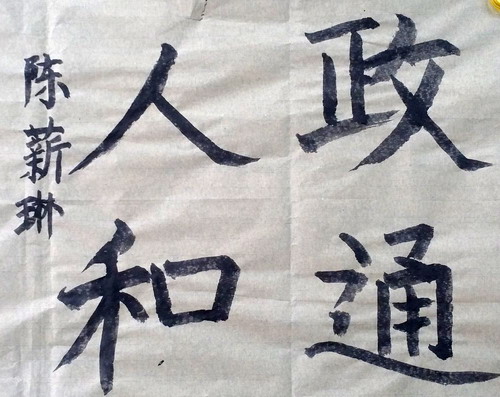 政通
人和
陈薪琳